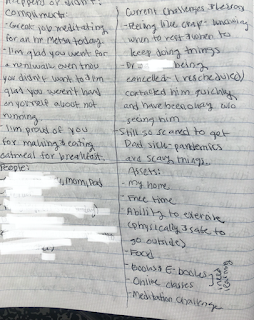 happens or didn't.
compliments
- Great job meditating
for an hr Metta today.
- I'm glad you went for
a run/walk even tho
you didn't want to & I'm
glad you weren't hard
on yourself about not
running
- I'm proud of you
for making & eating
oatmeal for breakfast.
People:
, Mom, Dad
Current challenges
- Feeling like crap - knowing
when to rest & when to
keep doing things
- Dr being
cancelled - I
contacted him quickly,
and have been okay w/o
seeing him
Still so scared to get
Dad sick - pandemics
are scary things.
Assets:
- My home
- Free time
- Ability to exercise
(physically & safe to
go outside)
- Food
- Books & E-books
- Online classes
- Meditation challenge